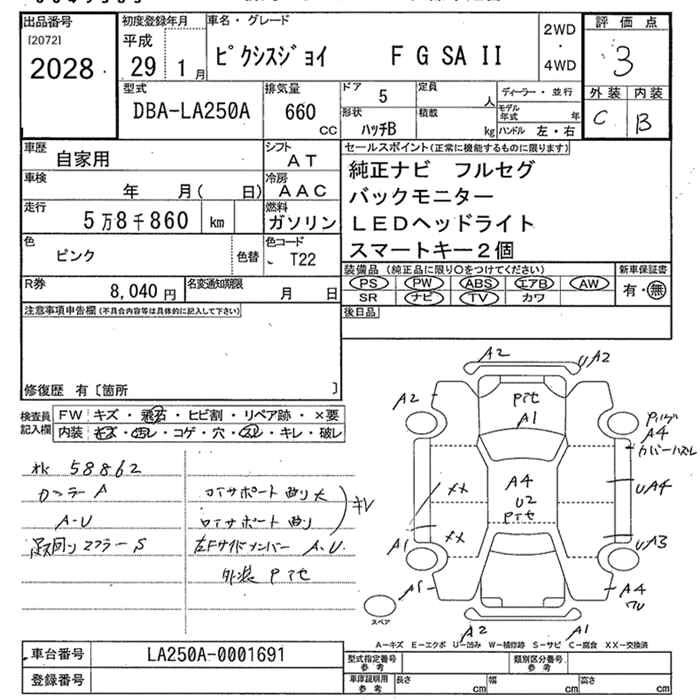 出品番号
[2072]
2028
初度登録年月
平成
29 1月
車名・グレード
ピクシスジョイ F G SA II
2WD
・
4WD
評価点
3
外装 内装
C B
型式
DBA-LA250A
排気量
660
cc
ドア 5
定員
人
形状
ハッチB
積載
kg
ディーラー・並行
モデル年式 年
ハンドル 左・右
車歴
自家用
シフト
AT
車検
年 月( 日)
冷房
AAC
走行
5万8千860 km
燃料
ガソリン
色
ピンク
色替
色コード
T22
R券
8,040円
名変通知期限
月 日
セールスポイント(正常に機能するものに限ります)
純正ナビ フルセグ
バックモニター
LEDヘッドライト
スマートキー2個
装備品(純正品に限り○をつけてください)
PS PW ABS エアB AW
SR ナビ TV カワ
新車保証書
有・無
後日品
注意事項申告欄(不具合内容等は具体的に記入して下さい)
修復歴 有〔箇所 〕
検査員記入欄
FW キズ・飛石・ヒビ割・リペア跡・×要
内装 キズ・汚レ・コゲ・穴・スレ・キレ・破レ
58862
A-U
コアサポート 曲り 大
コアサポート 曲り
左Fサイドメンバー A.U.
外装 Pite
足回り マフラー S
A2
UA2
A2
Pite
A1
A4
カバーハズレ
A4
U2
Pite
UA4
XX
XX
A1
UA3
A1
A4
A2
A1
スペア
A-キズ E-エクボ U-凹み W-補修跡 S-サビ C-腐食 XX-交換済
車台番号
LA250A-0001691
登録番号
型式指定番号参考
類別区分番号参考
車庫証明用参考
長さ cm
幅 cm
高さ cm